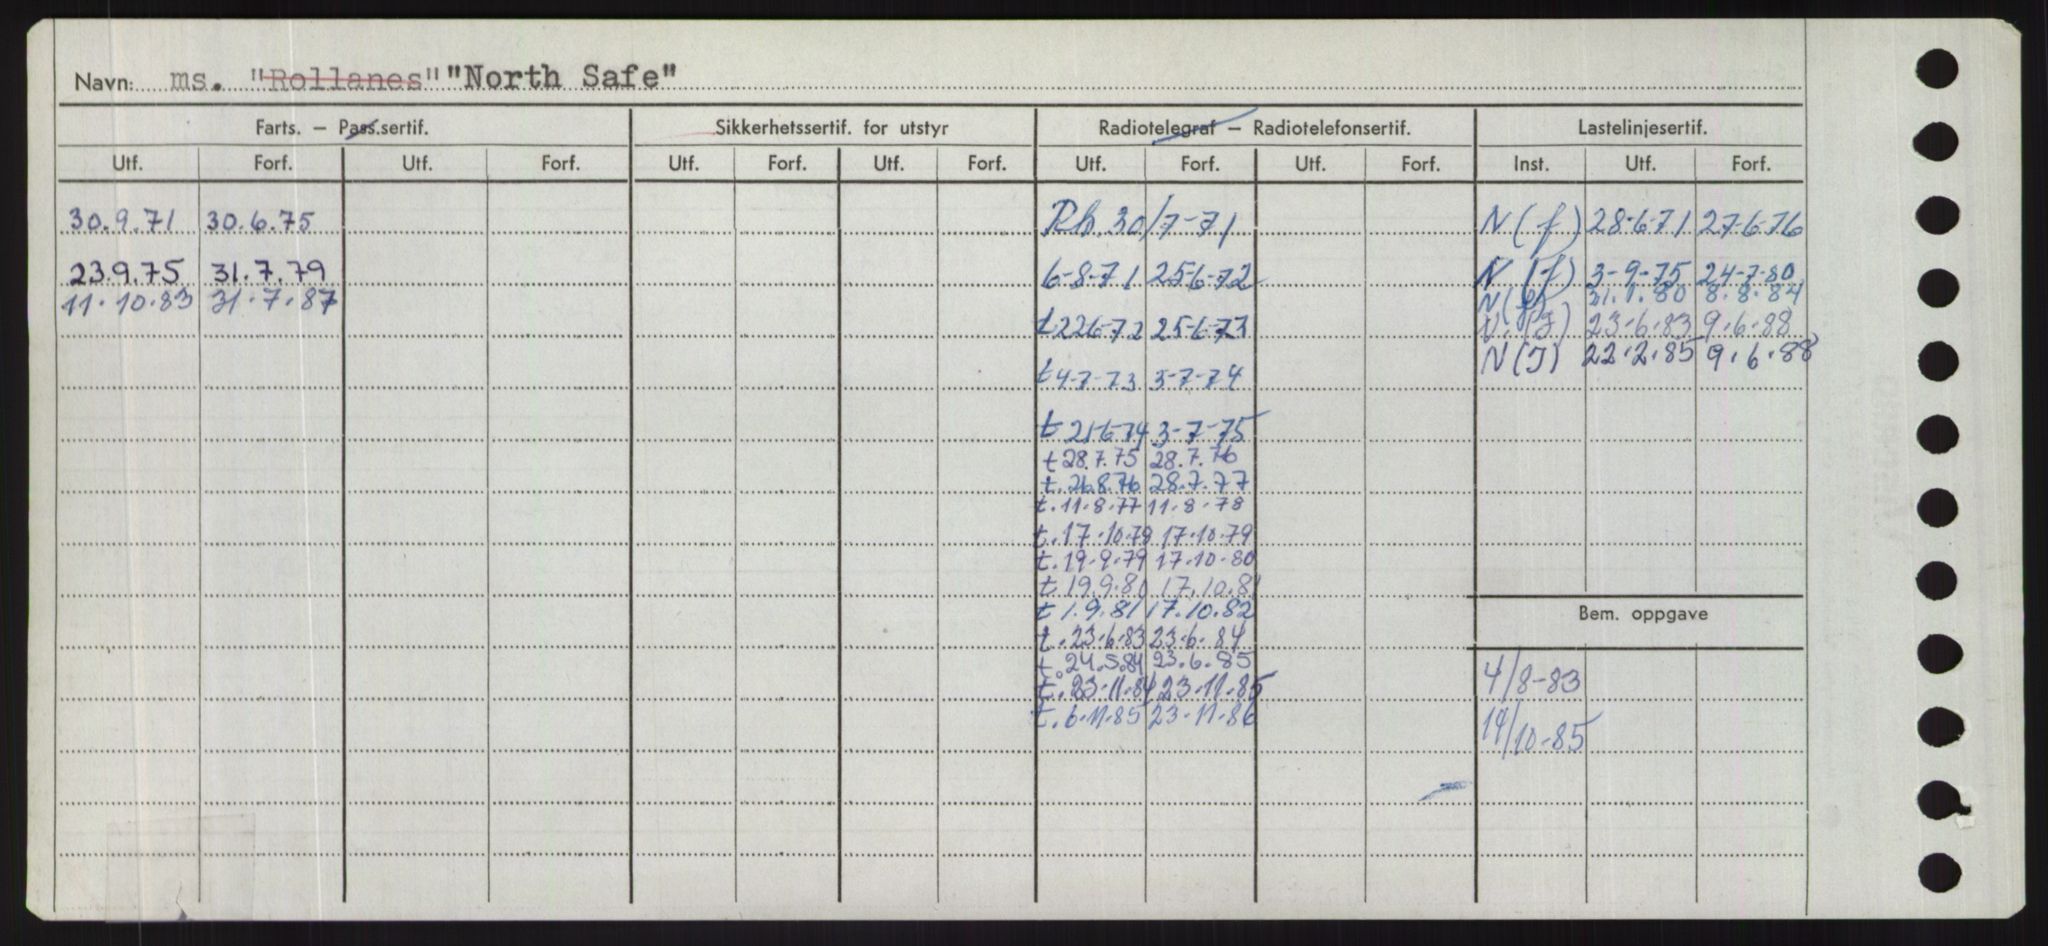 Navn: ms. "Rollanes" "North Safe"
Farts. – Pass.sertif. Sikkerhetssertif. for utstyr Radiotelegraf – Radiotelefonsertif. Lastelinjesertif.
Utf. Forf. Utf. Forf. Utf. Forf. Utf. Forf. Utf. Forf. Utf. Forf. Inst. Utf. Forf.
30.9.71 30.6.75 Rh. 30/7-71 N(f) 28-6-71 27-6-76
23.9.75 31.7.79 6-8-71 25-6-72 N(f) 3-9-75 24-7-80
11.10.83 31.7.87 31.1.80 8.8.84
t 22-6-72 25-6-73 N.(J) 23.6.83 9.6.88
N(J) 22.2.85 9.6.88
t 4-7-73 3-7-74
t 21-6-74 3-7-75
t 28.7.75 28.7.76
t. 26.8.76 28.7.77
t. 11.8.77 11.8.78
t. 17.10.78 17.10.79
t. 19.9.79 17.10.80
t 19.9.80 17.10.81
t 1.9.81 17.10.82
Bem. oppgave
t. 23.6.83 23.6.84
t. 24.5.84 23.6.85
4/8-83
t. 23.11.84 23.11.85
t. 6.11.85 23.11.86
14/10-85